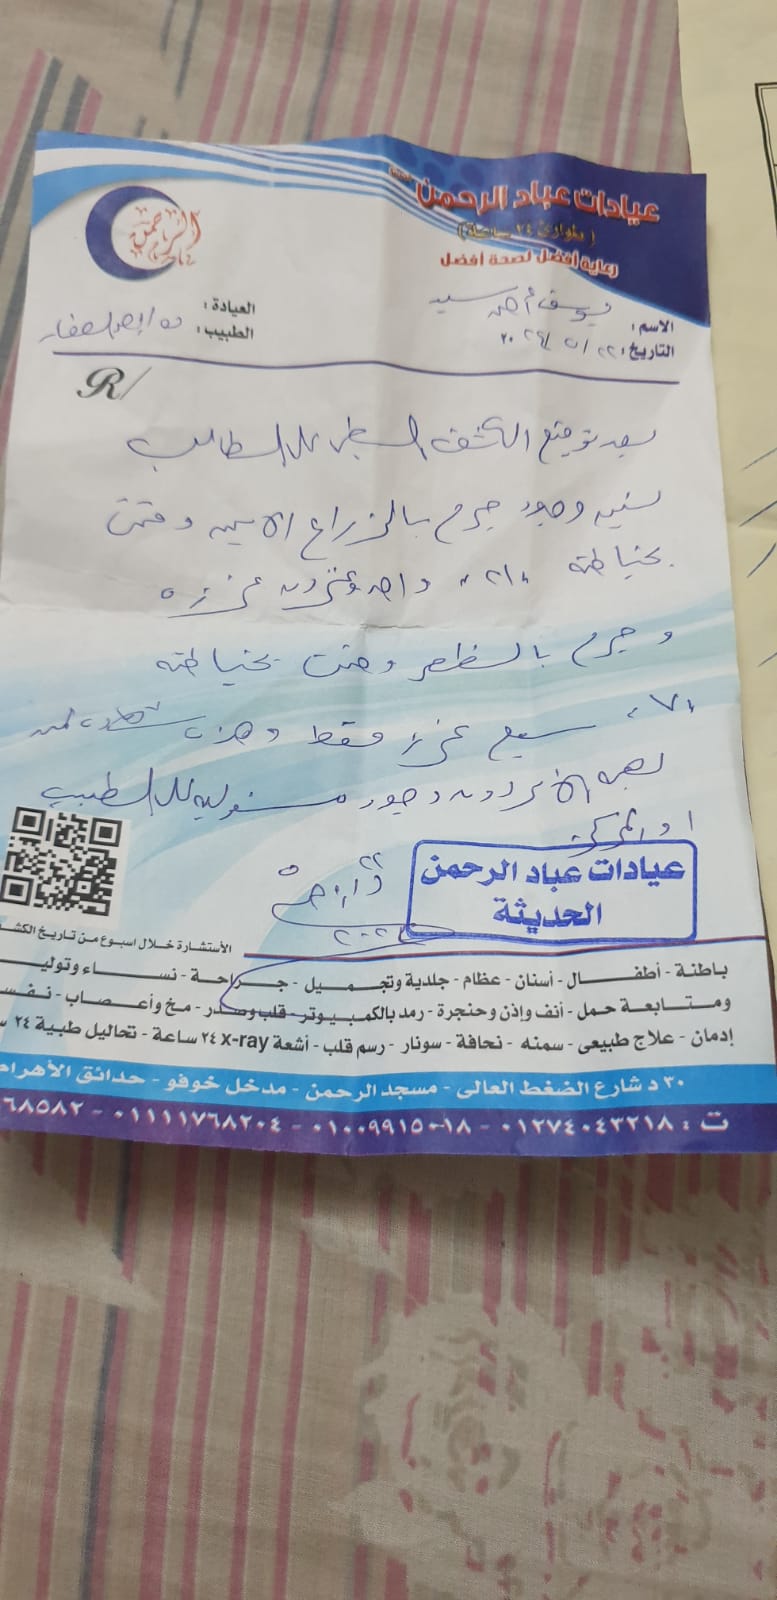 عيادات عباد الرحمن الحديثة
( طوارئ ٢٤ ساعة )
رعاية أفضل لصحة أفضل
الرحمن
الاسم : يوسف احمد سيد
التاريخ : ٢٢ / ٥ / ٢٠٢٤
العيادة :
الطبيب :
R/
بعد توقيع الكشف الطبى للطالب
تبين وجود جرح بالزراع الايمن وتمت
خياطته "٢١" واحد وعشرون غرزه
وجرح بالظهر وتمت خياطته
"٧" سبع غرز فقط وهذه شهادة منا
بدون وجود مسئولية للطبيب
او المركز
عيادات عباد الرحمن
الحديثة
الأستشارة خلال اسبوع من تاريخ الكشف
باطنة - أطفال - أسنان - عظام - جلدية وتجميل - جراحة - نساء وتوليد
ومتابعة حمل - أنف وإذن وحنجرة - رمد بالكمبيوتر - قلب وصدر - مخ وأعصاب - نفسـ
إدمان - علاج طبيعى - سمنه - نحافة - سونار - رسم قلب - أشعة x-ray ٢٤ ساعة - تحاليل طبية ٢٤ س
٣٠ د شارع الضغط العالى - مسجد الرحمن - مدخل خوفو - حدائق الأهرام
ت : ٠١٢٧٤٠٤٣٢١٨ - ٠١٠٠٩٩١٥٠١٨ - ٠١١١١٧٦٨٢٠٤ - ٦٨٥٨٢